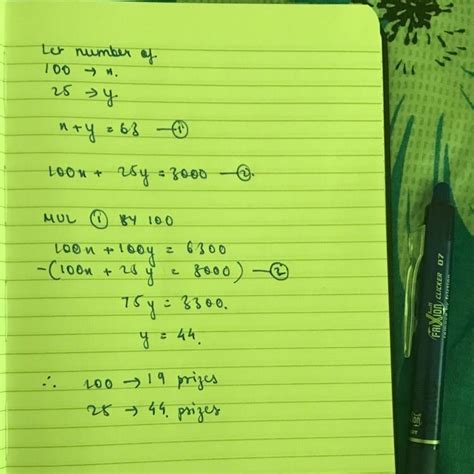 Let number of
100 → x.
25 → y.
x + y = 63 — ①
100x + 25y = 3000 — ②.
MUL ① BY 100
100x + 100y = 6300
-(100x + 25y = 3000) — ②
75y = 3300.
y = 44.
∴ 100 → 19 prizes
25 → 44. prizes
FRIXION CLICKER 07